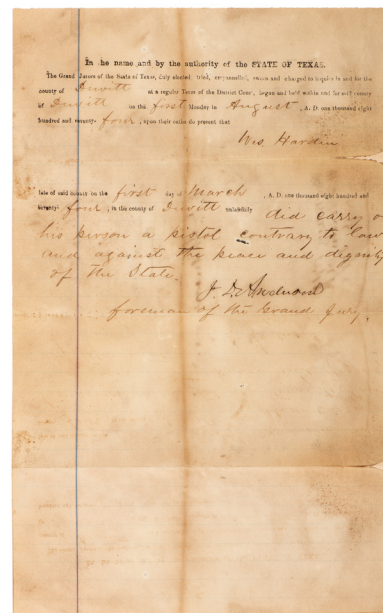 In the name and by the authority of the STATE OF TEXAS.
The Grand Jurors of the State of Texas, duly elected, tried, empanelled, sworn and charged to inquire in and for the
county of Dewitt at a regular Term of the District Court, begun and held within and for said county
of Dewitt on the first Monday in August, A. D. one thousand eight
hundred and seventy-four, upon their oaths do present that
Wes Hardin
late of said county on the first day March, A. D. one thousand eight hundred and
seventy-four, in the county of Dewitt unlawfully did carry o
his person a pistol contrary to law
and against the peace and dignity
of the State.
J. D. Anderson
foreman of the Grand Jury.